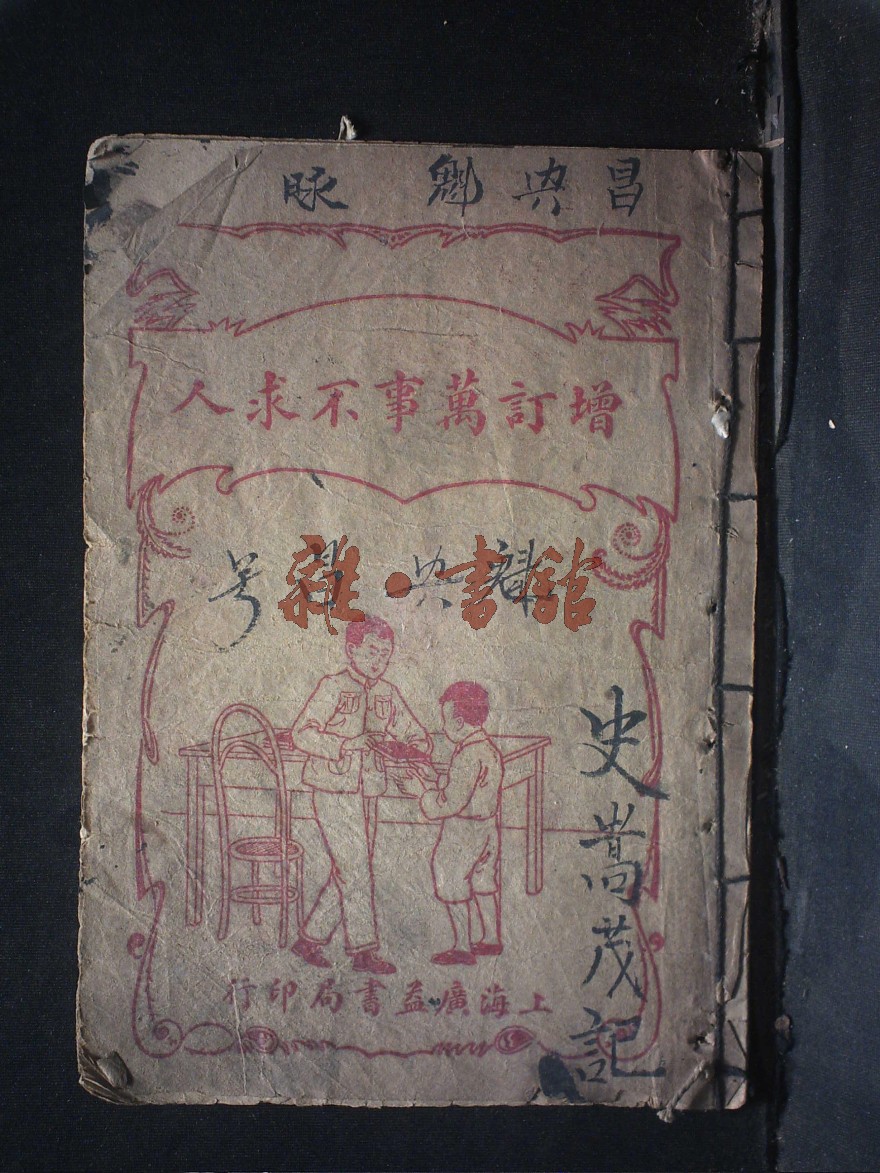 昌典魁脉
增訂萬事不求人
典號
雜·書舘
史嵩茂記
上海廣益書局印行